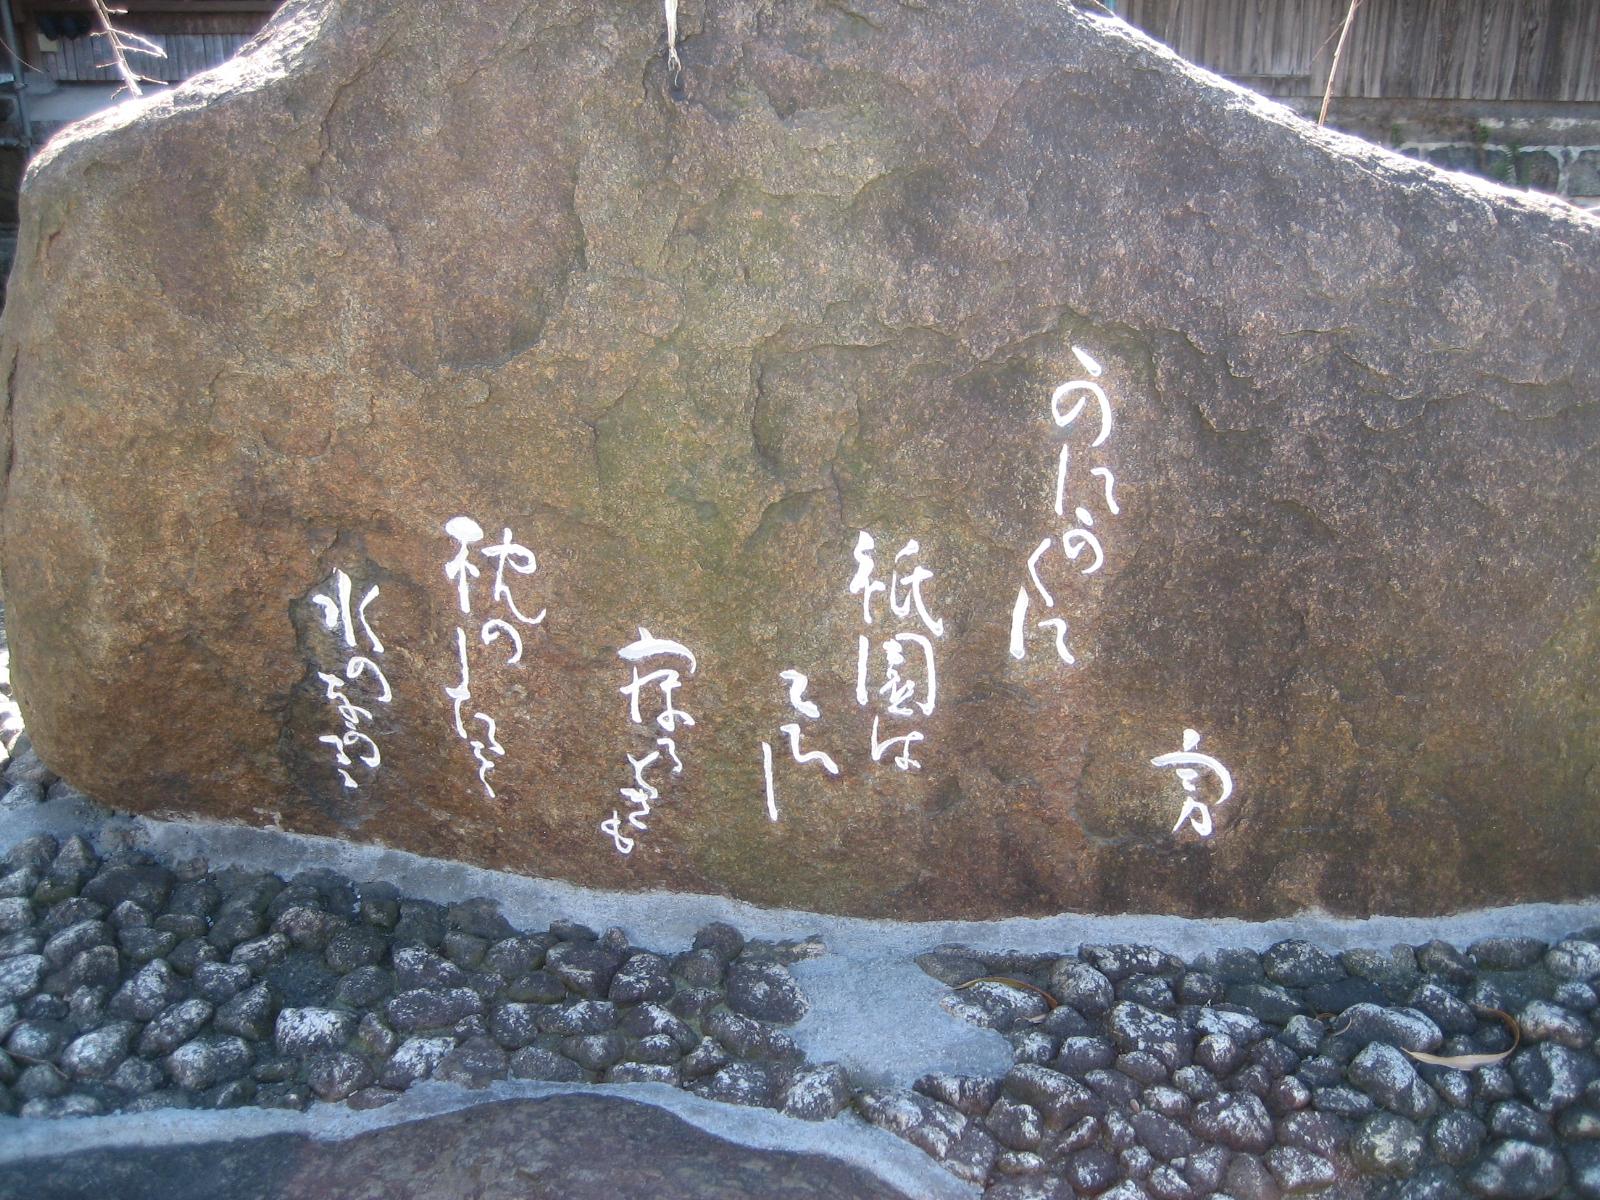 勇
かにかくに
祇園は
こひし
寐るときも
枕のしたを
水のながるる